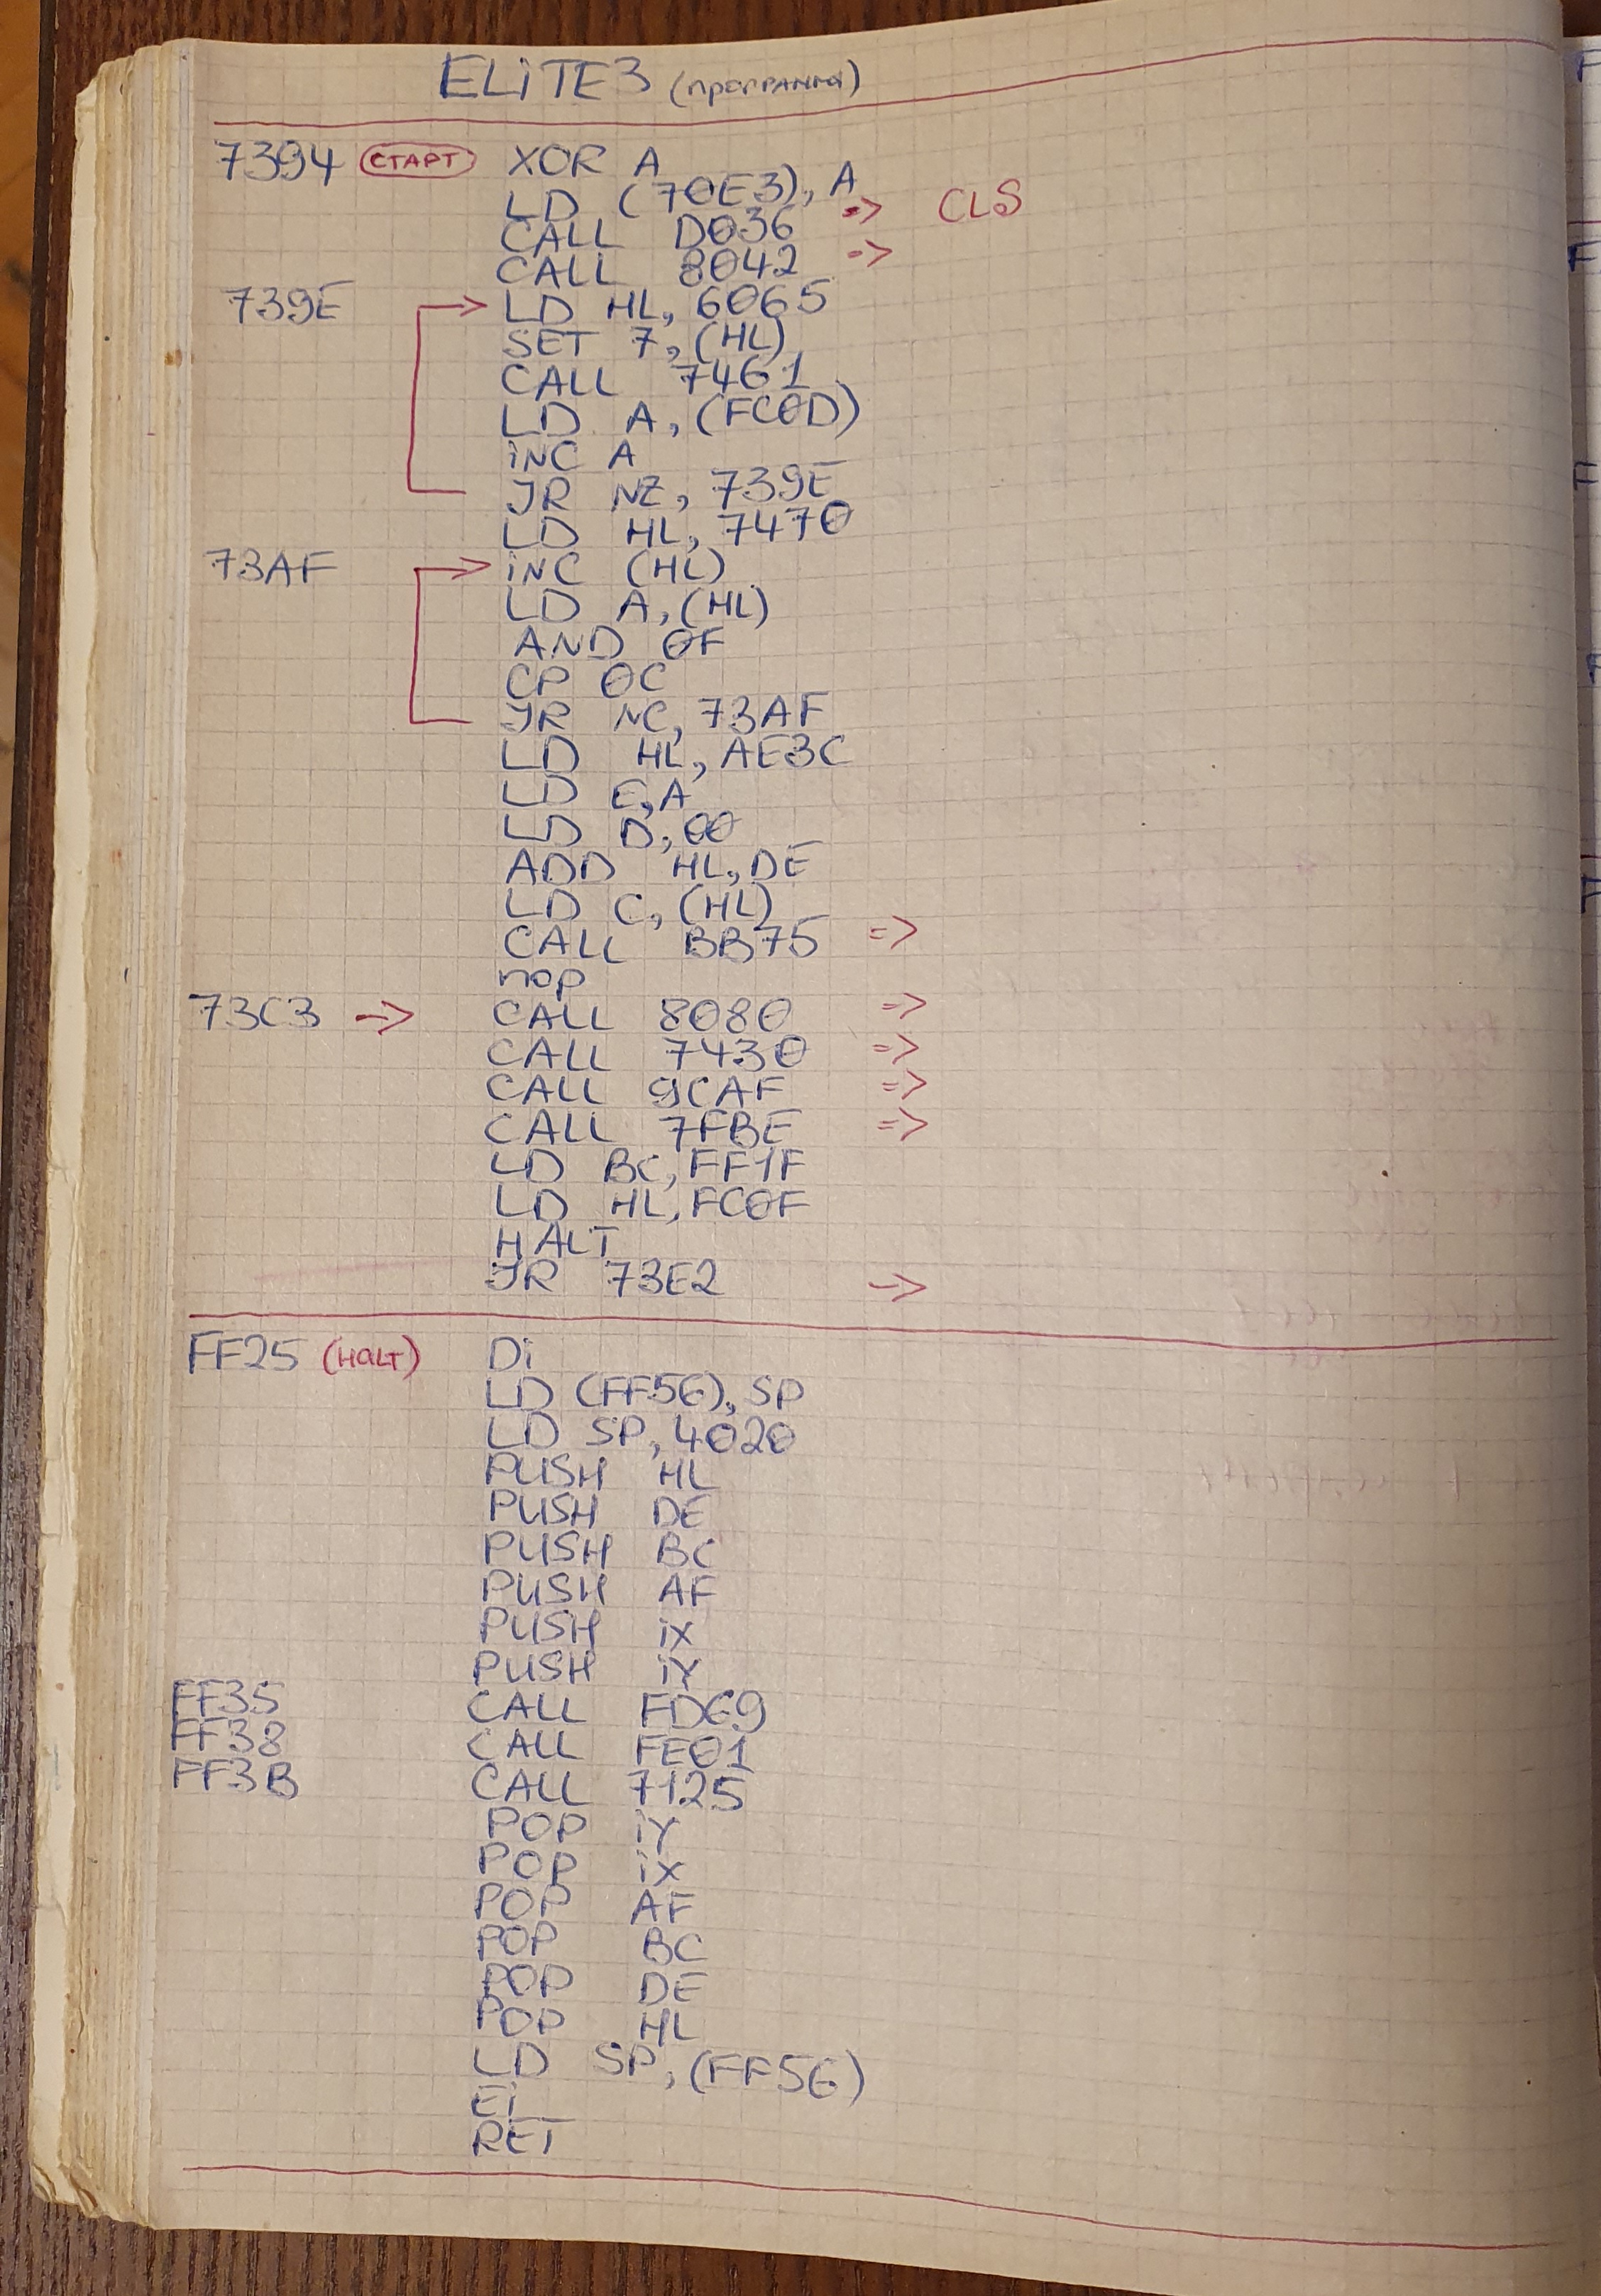 ELITE3 (программа)
7394 СТАРТ XOR A
LD (70E3), A
CALL D036 => CLS
CALL 8042 =>
739E LD HL, 6065
SET 7, (HL)
CALL 7461
LD A, (FC0D)
INC A
JR NZ, 739E
LD HL, 7470
73AF INC (HL)
LD A, (HL)
AND 0F
CP 0C
JR NC, 73AF
LD HL, AE3C
LD E, A
LD D, 00
ADD HL, DE
LD C, (HL)
CALL BB75 =>
nop
73C3 -> CALL 8080 =>
CALL 7430 =>
CALL 9CAF =>
CALL 7FBE =>
LD BC, FF1F
LD HL, FC0F
HALT
JR 73E2 ->
FF25 (HALT) Di
LD (FF56), SP
LD SP, 4020
PUSH HL
PUSH DE
PUSH BC
PUSH AF
PUSH iX
PUSH iY
FF35 CALL FD69
FF38 CALL FE01
FF3B CALL 7125
POP iY
POP iX
POP AF
POP BC
POP DE
POP HL
LD SP, (FF56)
Ei
RET